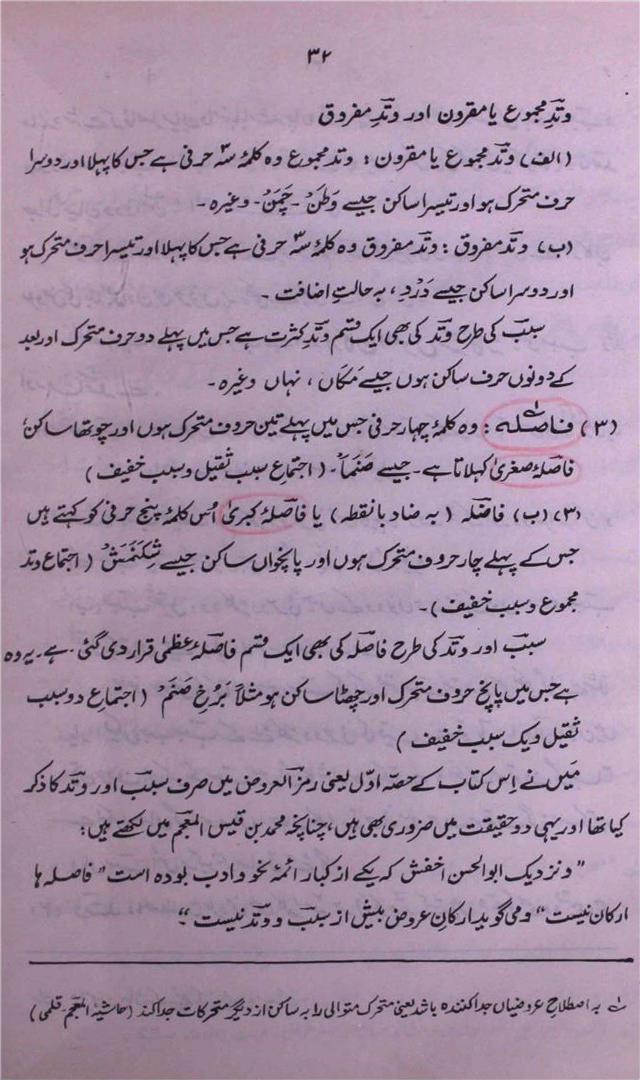 ۳۲
وتدِ مجموع یا مقرون اور وتدِ مفروق
(الف) وتدِ مجموع یا مقرون : وتد مجموع وہ کلمۂ سہ حرفی ہے جس کا پہلا اور دوسرا
حرف متحرک ہو اور تیسرا ساکن جیسے وَطَنْ - چَمَنْ - وغیرہ -
(ب) وتد مفروق : وتد مفروق وہ کلمۂ سہ حرفی ہے جس کا پہلا اور تیسرا حرف متحرک ہو
اور دوسرا ساکن جیسے دَرْدِ ، بہ حالتِ اضافت -
سبب کی طرح وتد کی بھی ایک قسم وتدِ کثرت ہے جس میں پہلے دو حرف متحرک اور بعد
کے دونوں حرف ساکن ہوں جیسے مَکَاں ، نہاں وغیرہ -
(۳) فاصلہ : وہ کلمۂ چہار حرفی جس میں پہلے تین حروف متحرک ہوں اور چوتھا ساکن،
فاصلۂ صغریٰ کہلاتا ہے - جیسے صَنَماً - ( اجتماعِ سبب ثقیل و سبب خفیف )
(۳) (ب) فاضلہ ( بہ ضاد بانقطہ ) یا فاصلۂ کبریٰ اُس کلمۂ پنج حرفی کو کہتے ہیں
جس کے پہلے چار حروف متحرک ہوں اور پانچواں ساکن جیسے شِکَنَمَشْ ( اجتماع وتد
مجموع و سبب خفیف ) -
سبب اور وتد کی طرح فاصلہ کی بھی ایک قسم فاصلۂ عظمیٰ قرار دی گئی - ہے - یہ وہ
ہے جس میں پانچ حروف متحرک اور چھٹا ساکن ہو مثلاً بَرُخِ صَنَمْ ( اجتماعِ دو سبب
ثقیل و یک سبب خفیف )
میں نے اِس کتاب کے حصہ اوّل یعنی رمز العروض میں صرف سبب اور وتد کا ذکر
کیا تھا اور یہی دو حقیقت میں ضروری بھی ہیں، چنانچہ محمد بن قیس المعجم میں لکھتے ہیں :
" و نزدیک ابوالحسن اخفش کہ یکے از کبار ائمۂ نحو و ادب بودہ است " فاصلہ ہا
ارکان نیست " و می گوید ارکانِ عروض بیش از سبب و وتد نیست "-
؎ بہ اصطلاحِ عروضیاں جدا کنندہ باشد یعنی متحرک متوالی را بہ ساکن از دیگر متحرکات جدا کند (حاشیۂ المعجم - قلمی )